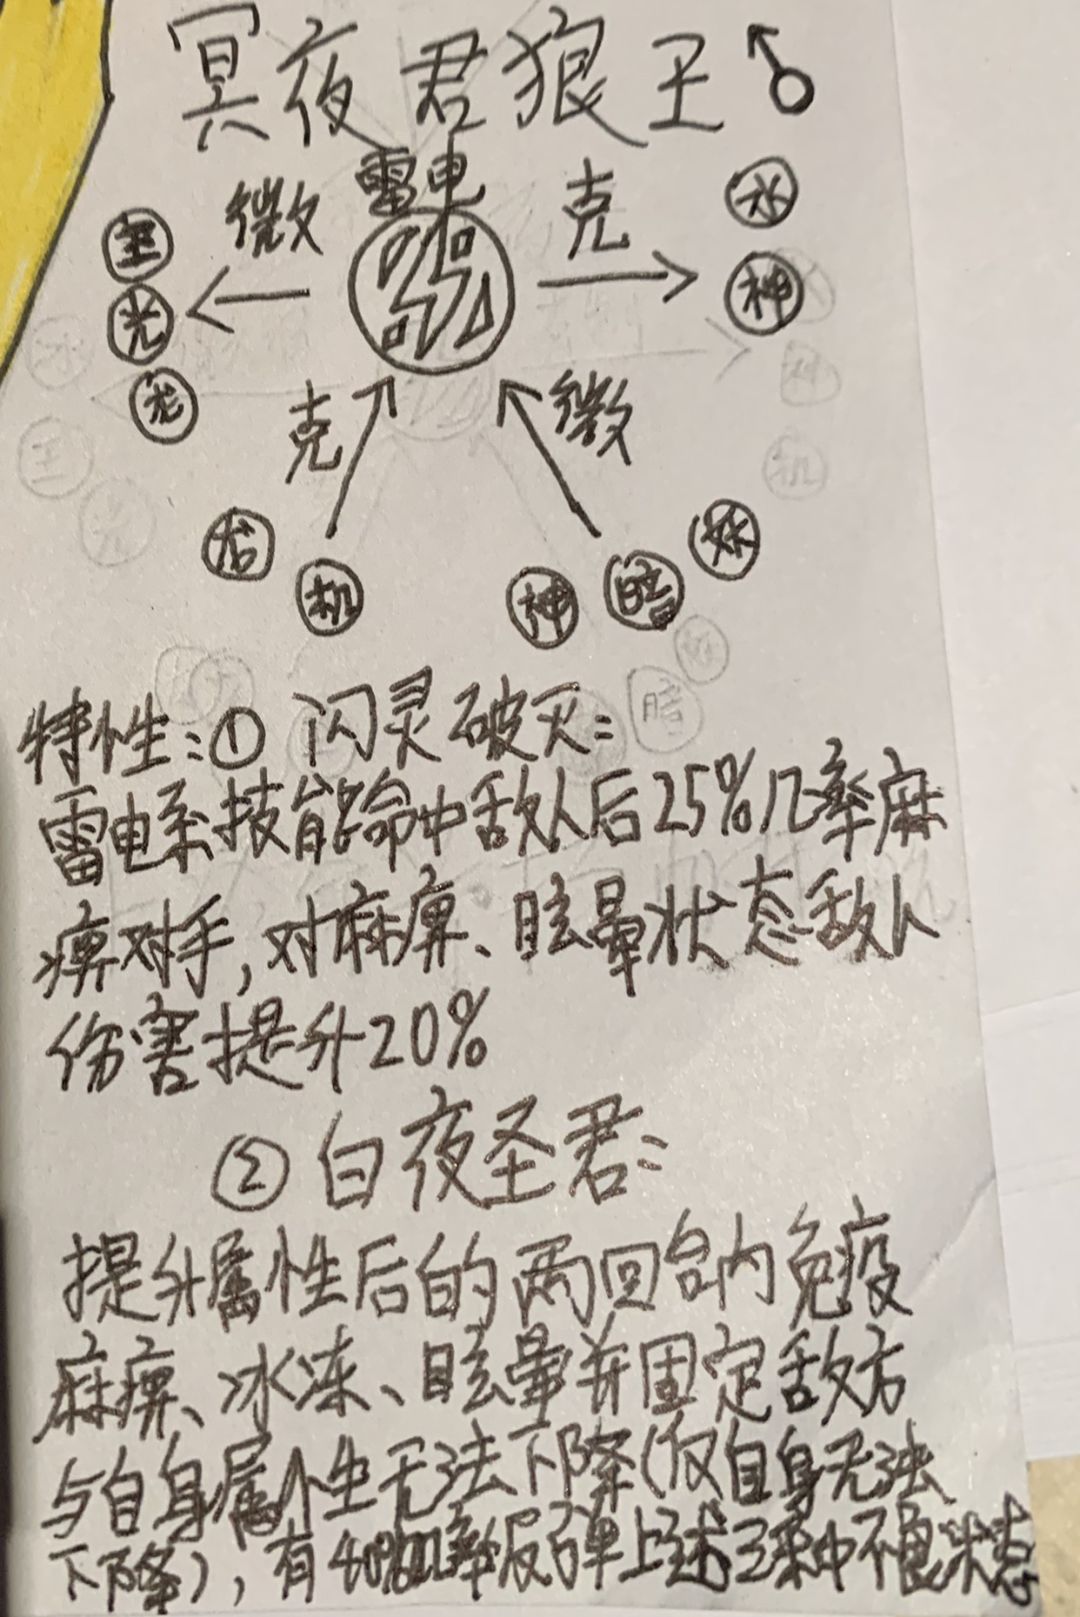 冥夜君狼王
雷电
微 克 水
王 神
光
龙
克 微
机 神 暗 妖
特性:① 闪灵破灭:
雷电系技能命中敌人后25%几率麻
痹对手,对麻痹、眩晕状态敌人
伤害提升20%
② 白夜圣君:
提升属性后的两回合内免疫
麻痹、冰冻、眩晕并固定敌方
与自身属性无法下降(仅自身无法
下降),有40%几率反弹上述三种不良状态